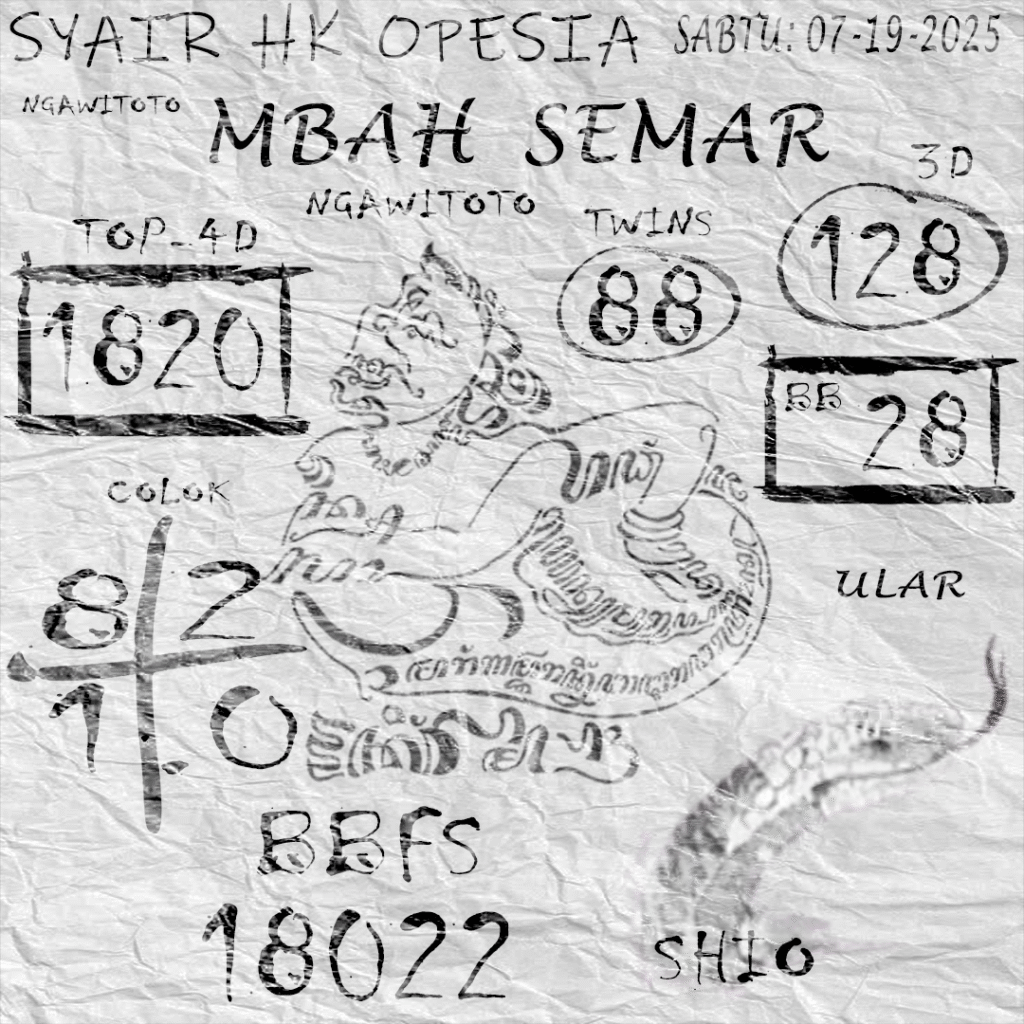 SYAIR HK OPESIA
SABTU: 07-19-2025
NGAWITOTO
MBAH SEMAR
NGAWITOTO
3D
128
TWINS
88
TOP_4D
1820
BB 28
COLOK
8 2
1 0
ULAR
BBFS
18022
SHIO